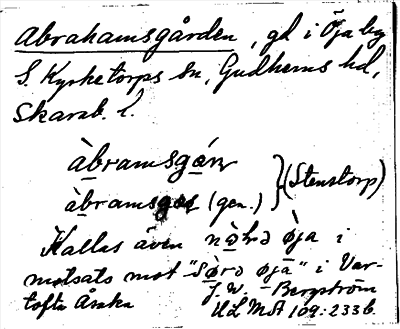 Abrahamsgården, gd i Öja by
S. Kyrketorps sn, Gudhems hd,
Skarab. l.
àbramsgάṇ
àbramsgας (gen.) } (Stenstorp)
Kallas även nǫ̀ʰrə øja i
motsats mot "sǫ̀rə øja" i Var-
tofta Åsaka J. W. Bergström
ULMA 109:233 b.